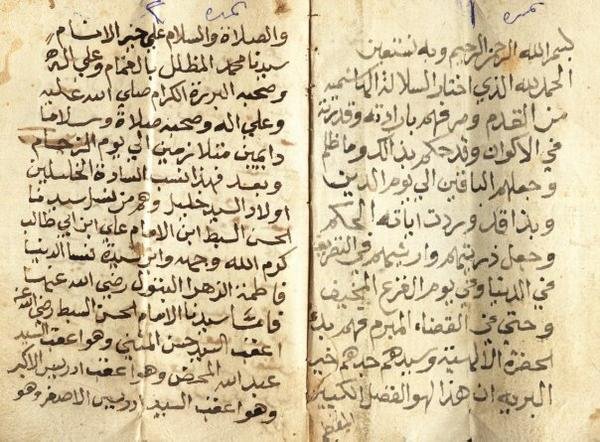 نمره ١
بسم الله الرحمن الرحيم وبه نستعين
الحمد لله الذي اختار السلالة الهاشمية
من القدم وصرفهم بارادته وقدرته
في الاكوان وقد حكم بذالك وما ظلم
وجعلهم الباقين الي يوم الدين
وبذا قد وردت اياته الحكم
وجعل ذريتهم وارثيهم في
في الدنيا وفي يوم الفزع المخيف
وحتي في القضاء المبرم فهم
الحضرة الالهية وسيدهم جدهم خير
البريه ان هذا لهو الفضل الكبير
نمره ٢
والصلاة والسلام علي خير الانام
سيدنا محمد المظلل بالغمام وعلي اله
وصحبه البررة الكرام صلي الله عليه
وعلي اله وصحبه صلاة وسلاما
دايمين متلازمين الي يوم الزحام
وبعد فهذا نسب السادة الخليليين
اولاد السيد خليل وهم من نسل سيدنا
الحسن السبط ابن الامام علي ابن ابي طالب
كرم الله وجهه وابن سيدة نسا الدنيا
فاطمة الزهرا البتول رضي الله عنها
سيدنا الامام الحسن السبط رضي الله عنه
اعقب السيد حسن المثني وهو اعقب السيد
عبد الله المحض وهو اعقب ادريس الاكبر
وهو اعقب السيد ادريس الاصغر وهو